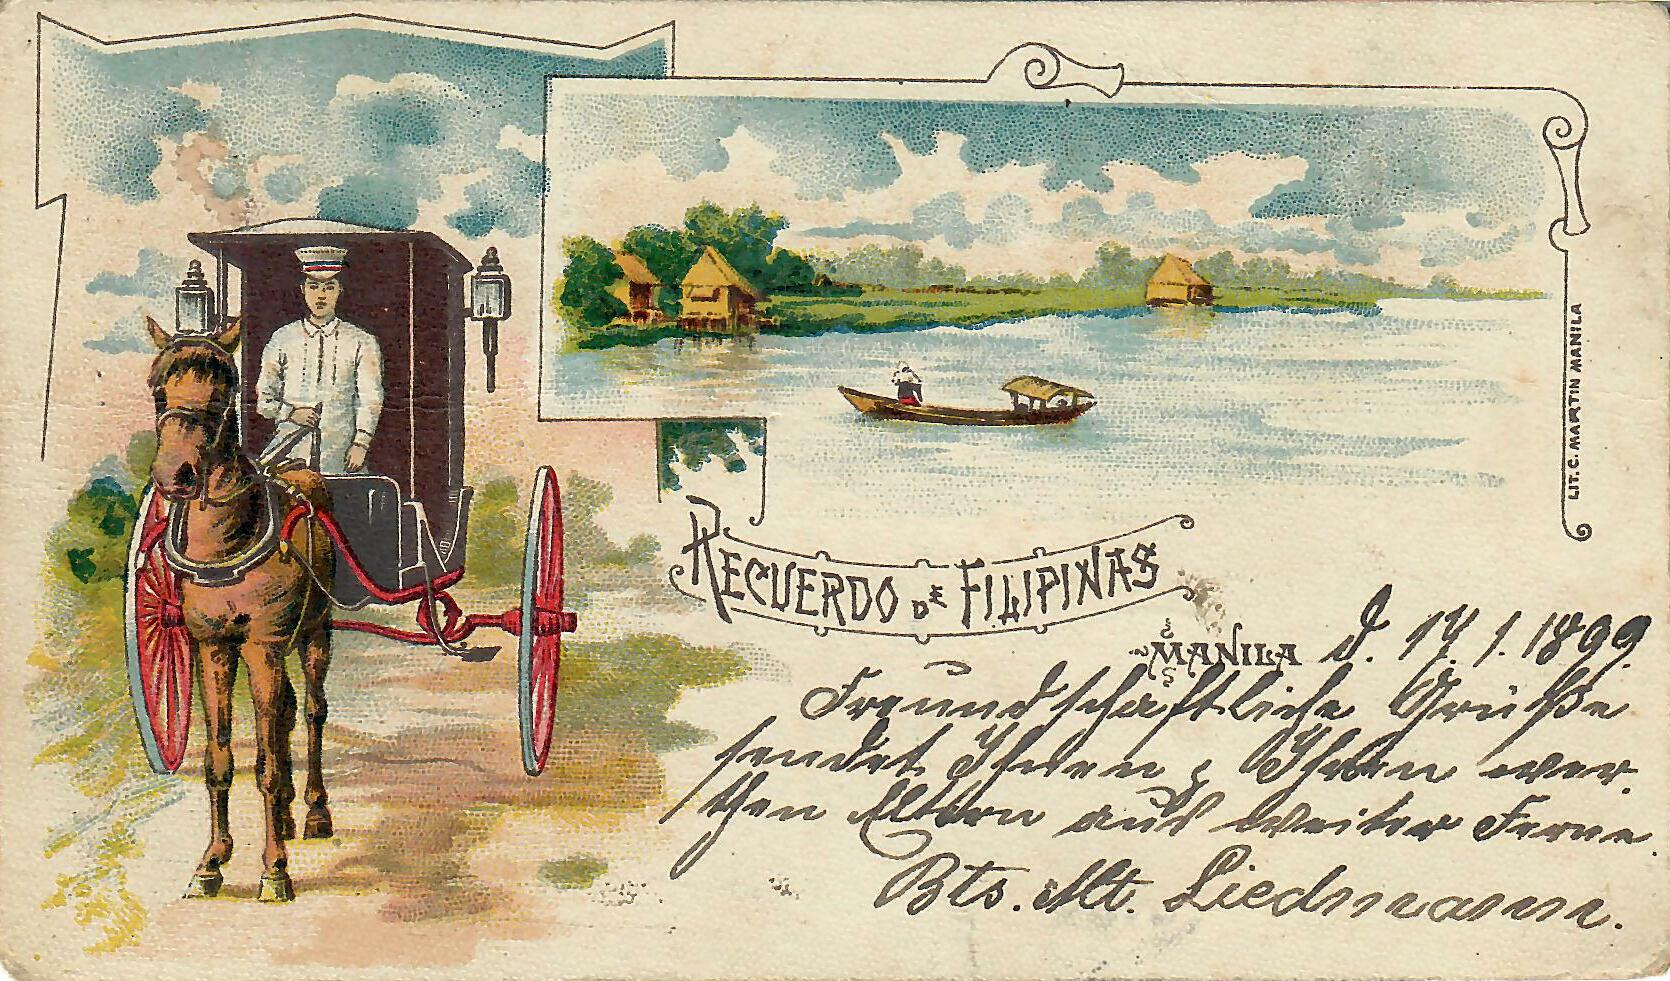 RECUERDO DE FILIPINAS
LIT. C. MARTIN MANILA
MANILA d. 17.1.1899.
Freundschaftliche Grüße
sendet Ihnen & Ihren wer-
then Eltern aus weiter Ferne
Bts. Mt. Liedmann.